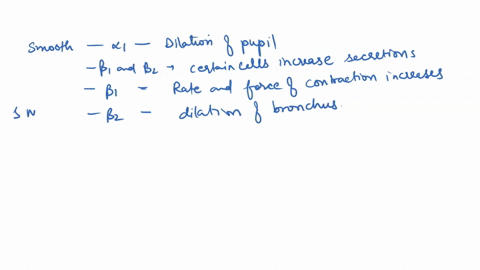 Smooth — α1 — Dilation of pupil
– β1 and β2 → certain cells increase secretions
– β1 – Rate and force of contraction increases
S N – β2 – dilation of bronchus.